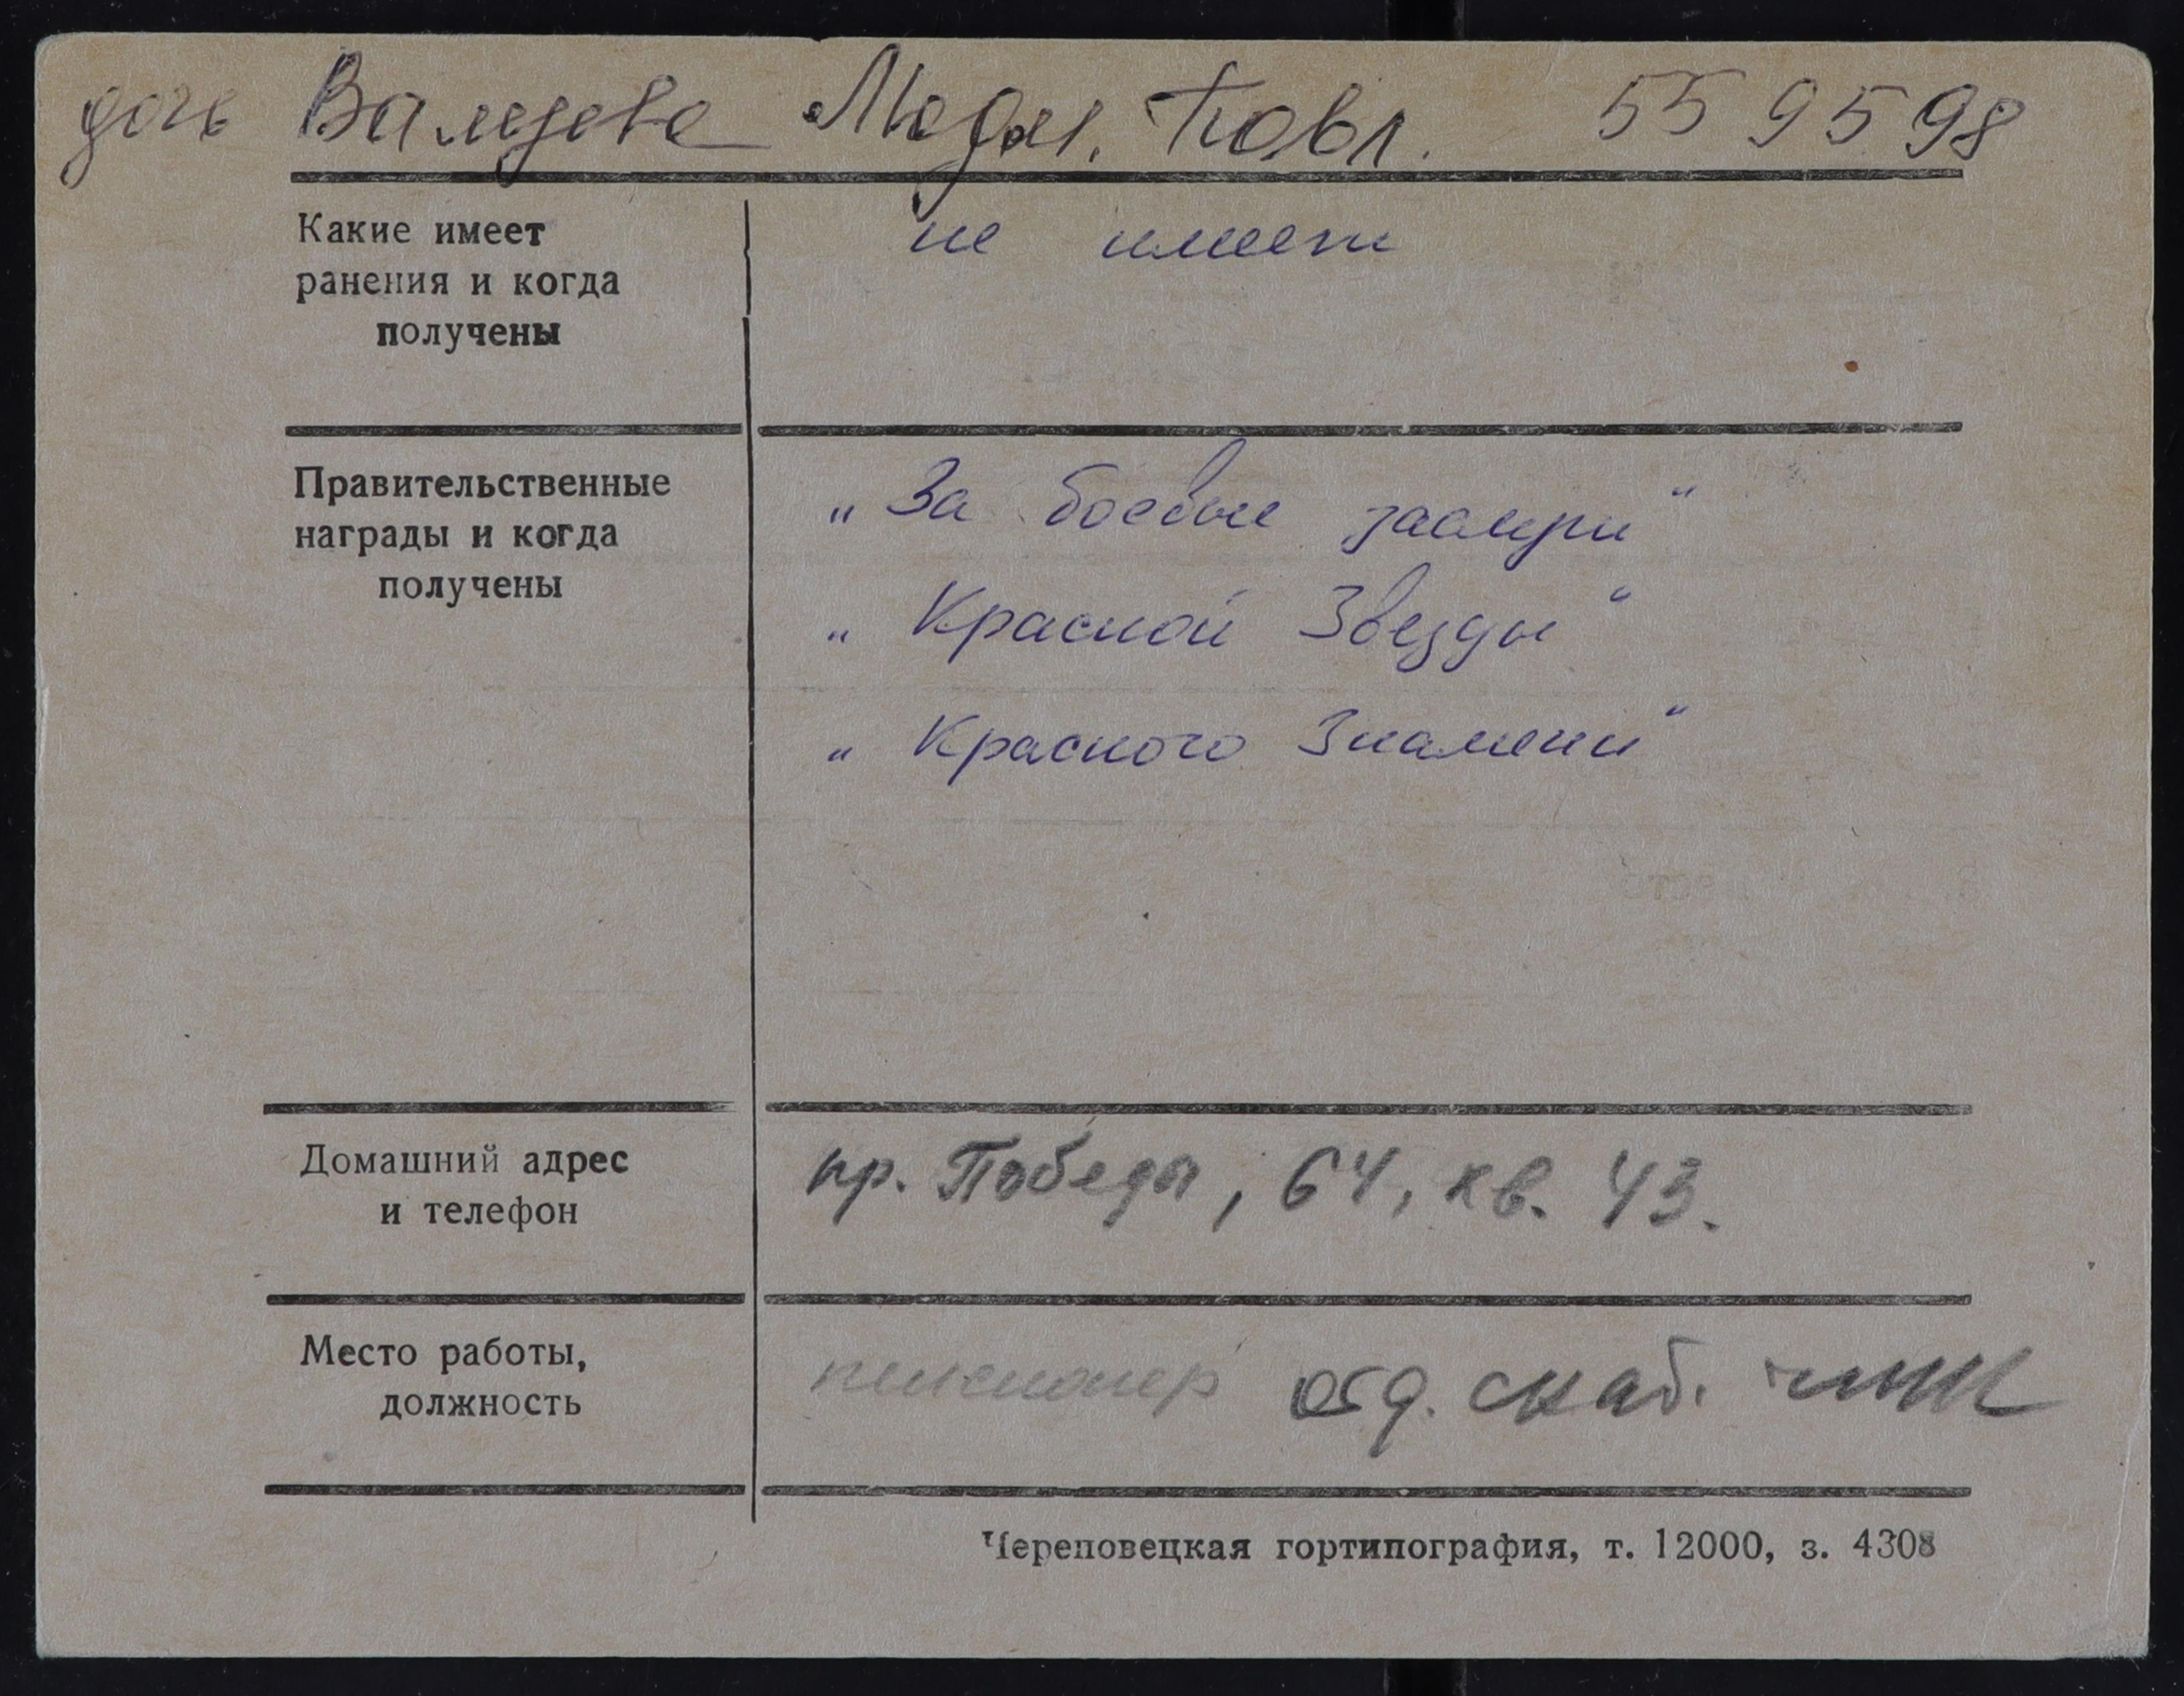 дочь Валуева Людм. Павл. 55 95 98
Какие имеет
ранения и когда
получены
не имеет
Правительственные
награды и когда
получены
„За боевые заслуги“
„Красной Звезды“
„Красного Знамени“
Домашний адрес
и телефон
пр. Победы, 64, кв. 43.
Место работы,
должность
пенсионер отд. снаб.
Череповецкая гортипография, т. 12000, з. 4308